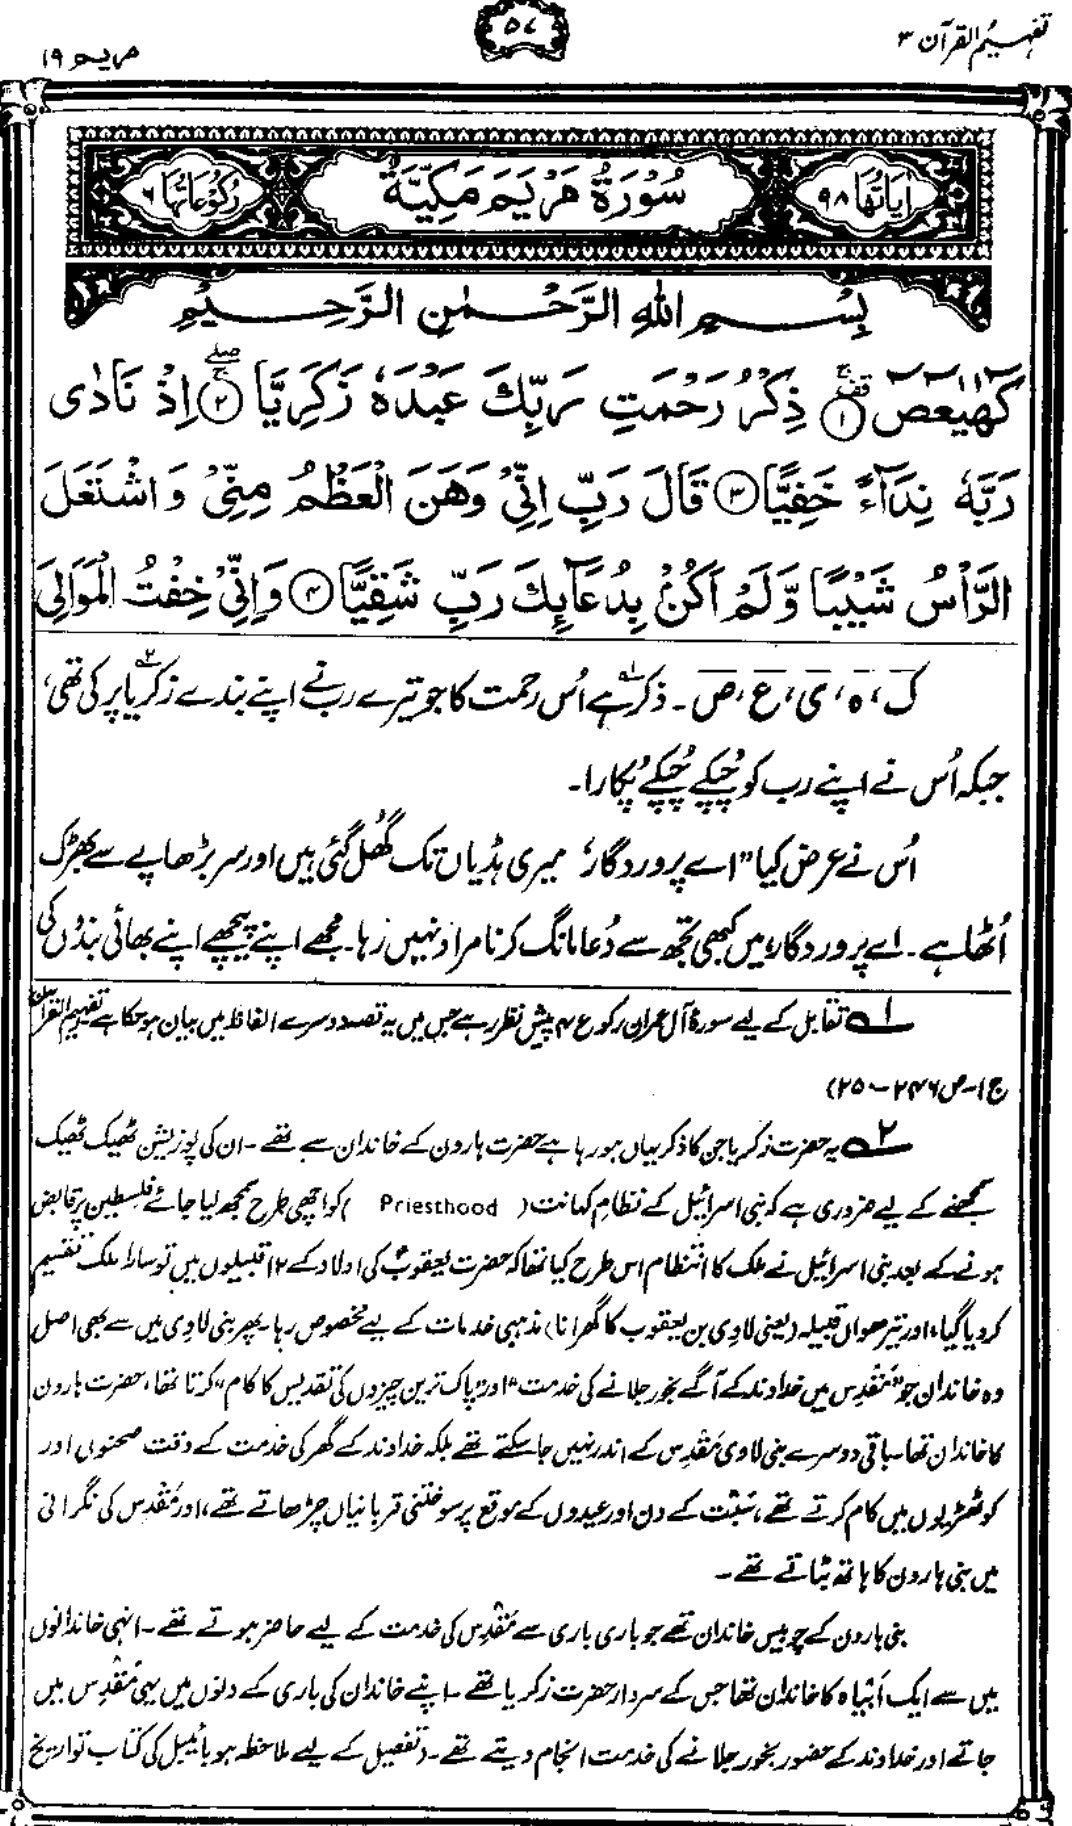 تفہیم القرآن ۳
۵۷
مریم ۱۹
اٰیَاتُهَا ۹۸
سُوْرَةُ مَرْيَمَ مَكِّيَّةٌ
رُكُوْعَاتُهَا ۶
بِسْمِ اللهِ الرَّحْمٰنِ الرَّحِيْمِ
كٓهٰيٰعٓصٓ ۚ۱ ذِكْرُ رَحْمَتِ رَبِّكَ عَبْدَهٗ زَكَرِيَّا ۖۚ۲ اِذْ نَادٰى
رَبَّهٗ نِدَآءً خَفِيًّا ۳ قَالَ رَبِّ اِنِّيْ وَهَنَ الْعَظْمُ مِنِّيْ وَاشْتَعَلَ
الرَّاْسُ شَيْبًا وَّلَمْ اَكُنْۢ بِدُعَآئِكَ رَبِّ شَقِيًّا ۴ وَاِنِّيْ خِفْتُ الْمَوَالِيَ
ک، ہ، ی، ع، ص۔ ذکر ۱ہے اُس رحمت کا جو تیرے رب نے اپنے بندے زکریا۲ پر کی تھی،
جبکہ اُس نے اپنے رب کو چُپکے چُپکے پکارا۔
اُس نے عرض کیا ”اے پروردگار، میری ہڈیاں تک گھُل گئی ہیں اور سر بڑھاپے سے بھڑک
اُٹھا ہے۔ اے پروردگار، میں کبھی تجھ سے دُعا مانگ کر نامراد نہیں رہا۔ مجھے اپنے پیچھے اپنے بھائی بندوں کی
۱؎ تقابل کے لیے سورۂ آل عمران رکوع ۴ پیش نظر رہے جس میں یہ قصہ دوسرے الفاظ میں بیان ہو چکا ہے تفہیم القرآن
ج ۱۔ ص ۲۴۶ ۔ ۲۵۰)
۲؎ یہ حضرت زکریا جن کا ذکر یہاں ہو رہا ہے حضرت ہارون کے خاندان سے تھے۔ ان کی پوزیشن ٹھیک ٹھیک
سمجھنے کے لیے ضروری ہے کہ بنی اسرائیل کے نظامِ کہانت (Priesthood) کو اچھی طرح سمجھ لیا جائے فلسطین پر قابض
ہونے کے بعد بنی اسرائیل نے ملک کا انتظام اس طرح کیا تھا کہ حضرت یعقوبؑ کی اولاد کے ۱۲ قبیلوں میں تو سارا ملک تقسیم
کر دیا گیا، اور تیرھواں قبیلہ (یعنی لاوی بن یعقوب کا گھرانا) مذہبی خدمات کے لیے مخصوص رہا۔ پھر بنی لاوی میں سے بھی اصل
وہ خاندان جو ”مَقْدِس میں خداوند کے آگے بخور جلانے کی خدمت“ اور ”پاک ترین چیزوں کی تقدیس کا کام“ کرتا تھا، حضرت ہارون
کا خاندان تھا۔ باقی دوسرے بنی لاوی مَقْدِس کے اندر نہیں جا سکتے تھے بلکہ خداوند کے گھر کی خدمت کے وقت صحنوں اور
کوٹھڑیوں میں کام کرتے تھے، سَبْت کے دن اور عیدوں کے موقع پر سوختنی قربانیاں چڑھاتے تھے، اور مَقْدِس کی نگرانی
میں بنی ہارون کا ہاتھ بٹاتے تھے۔
بنی ہارون کے چوبیس خاندان تھے جو باری باری سے مَقْدِس کی خدمت کے لیے حاضر ہوتے تھے۔ انہی خاندانوں
میں سے ایک اَبْیاہ کا خاندان تھا جس کے سردار حضرت زکریا تھے۔ اپنے خاندان کی باری کے دنوں میں یہی مَقْدِس میں
جاتے اور خداوند کے حضور بخور جلانے کی خدمت انجام دیتے تھے۔ (تفصیل کے لیے ملاحظہ ہو بائیبل کی کتاب تواریخ